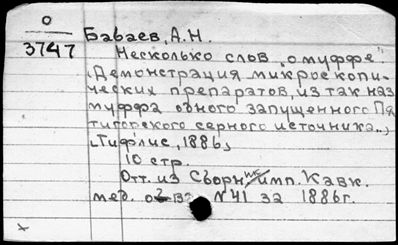 О
3747
Бабаев, А.Н.
Несколько слов „о муффе".
(Демонстрация микроскопи-
ческих препаратов, из так наз
муффа одного запущенного Пя
тигорского серного источника..,
[Тифлис, 1886],
10 стр.
Отт. из Сборн имп. Кавк.
мед. N 41 за 1886 г.